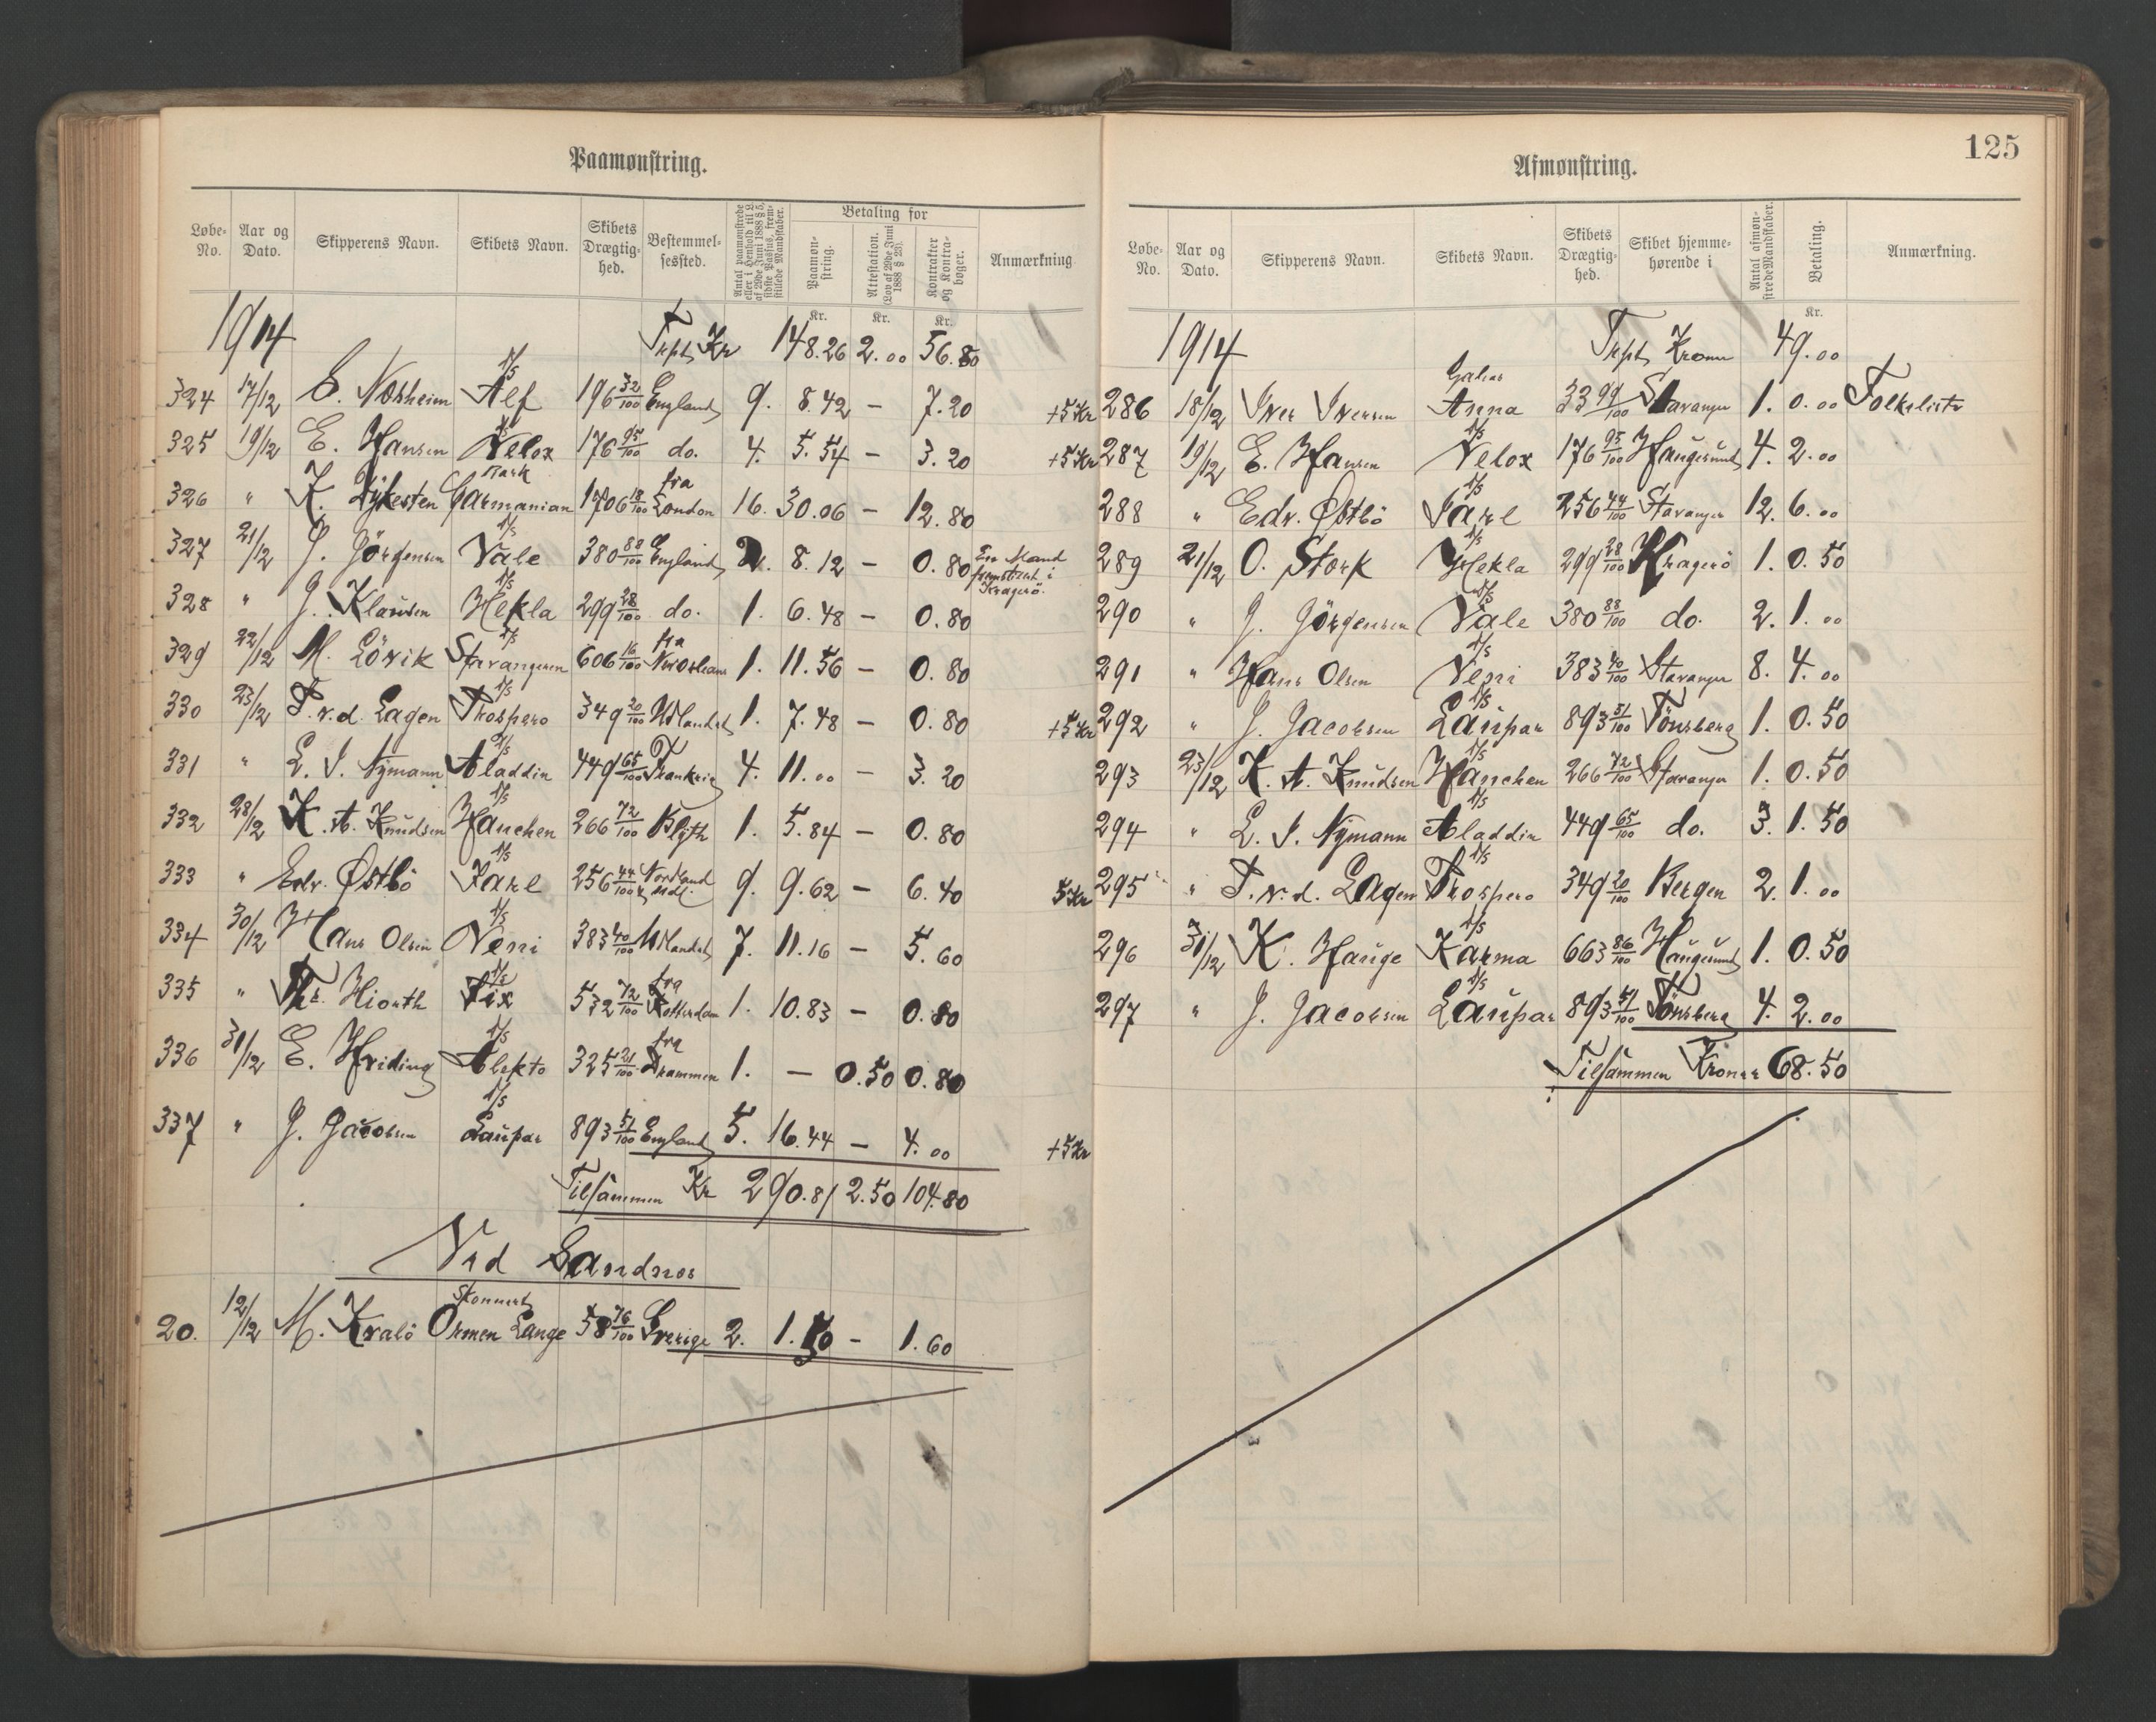 Paamønstring.
Løbe-No. Aar og Dato. Skipperens Navn. Skibets Navn. Skibets Drægtighed. Bestemmelsessted. Antal paamønstrede eller i Henhold til L. af 29de Juni 1888 § 5, sidste Passus, fremstillede Mandskaber. Betaling for Paamønstring. Attestation. (Lov af 29de Juni 1888 § 23). Kontrakter og Kontrabøger. Anmærkning
Kr. Kr. Kr.
1914 Trpt Kr 148.26 2.00 56.80
324 17/12 E. Norheim D/S Alf 196 32/100 England 9. 8.42 — 7.20 +5 Kr
325 19/12 E. Hansen D/S Velox 176 95/100 do. 4. 5.54 — 3.20 +5 Kr
326 " K. Dykesten Bark Carmanian 1706 18/100 fra London 16. 30.06 — 12.80
327 21/12 J. Jörgensen D/S Vale 380 88/100 England 2. 8.12 — 0.80 En Mand fremstillet i Kragerø.
328 " J. Klausen D/S Hekla 299 28/100 do. 1. 6.48 — 0.80
329 22/12 M. Lövik D/S Stavangeren 606 16/100 fra 1. 11.56 — 0.80
330 23/12 T. v. d. Lagen D/S Prospero 349 20/100 Udlandet 1. 7.48 — 0.80 +5 Kr
331 " L. J. Nÿmann D/S Aladdin 449 65/100 Frankrig 4. 11.00 — 3.20
332 28/12 K. A. Knudsen D/S Hanchen 266 72/100 Blyth 1. 5.84 — 0.80
333 " Edv. Østbö D/S Jarl 256 44/100 Nordland & Udl. 9. 9.62 — 6.40 5 Kr
334 30/12 Hans Olsen D/S Veni 383 40/100 Udlandet 7. 11.16 — 5.60
335 " Thr. Hiorth D/S Pix 532 72/100 fra Rotterdam 1. 10.83 — 0.80
336 31/12 E. Hviding D/S Alekto 325 21/100 fra Drammen 1. — 0.50 0.80
337 " J. Jacobsen D/S Laupar 893 51/100 England 5. 16.44 — 4.00 +5 Kr
Tilsammen Kr 290.81 2.50 104.80
Ved Sandnes
20. 12/12 M. Kvalö Skonnert Ormen Lange 58 76/100 Sverige 2. 1.50 — 1.60
Afmønstring. 125
Løbe-No. Aar og Dato. Skipperens Navn. Skibets Navn. Skibets Drægtighed. Skibet hjemmehørende i Antal afmønstrede Mandskaber. Betaling. Anmærkning.
Kr.
1914 Trpt Kroner 49.00
286 18/12 Iver Iversen Galeas Anna 33 99/100 Stavanger 1. 0.00 Folkeliste
287 19/12 E. Hansen D/S Velox 176 95/100 Haugesund 4. 2.00
288 " Edv. Østbö D/S Jarl 256 44/100 Stavanger 12. 6.00
289 21/12 O. Stork D/S Hekla 299 28/100 Kragerö 1. 0.50
290 " J. Jörgensen D/S Vale 380 88/100 do. 2. 1.00
291 " Hans Olsen D/S Veni 383 40/100 Stavanger 8. 4.00
292 " J. Jacobsen D/S Laupar 893 51/100 Tönsberg 1. 0.50
293 23/12 K. A. Knudsen D/S Hanchen 266 72/100 Stavanger 1. 0.50
294 " L. J. Nymann D/S Aladdin 449 65/100 do. 3. 1.50
295 " T. v. d. Lagen D/S Prospero 349 20/100 Bergen 2. 1.00
296 31/12 K. Hauge D/S Karma 663 86/100 Haugesund 1. 0.50
297 " J. Jacobsen D/S Laupar 893 51/100 Tönsberg 4. 2.00
Tilsammen Kroner 68.50